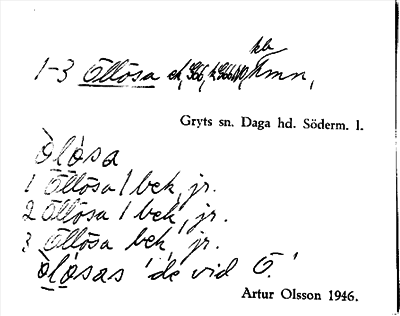 1-3 Öllösa
hmn,
Gryts sn. Daga hd. Söderm. l.
Òlósa
1 Öllösa / bek, jr.
2 Öllösa / bek, jr.
3 Öllösa bek, jr.
Òlósas 'de vid Ö.'
Artur Olsson 1946.